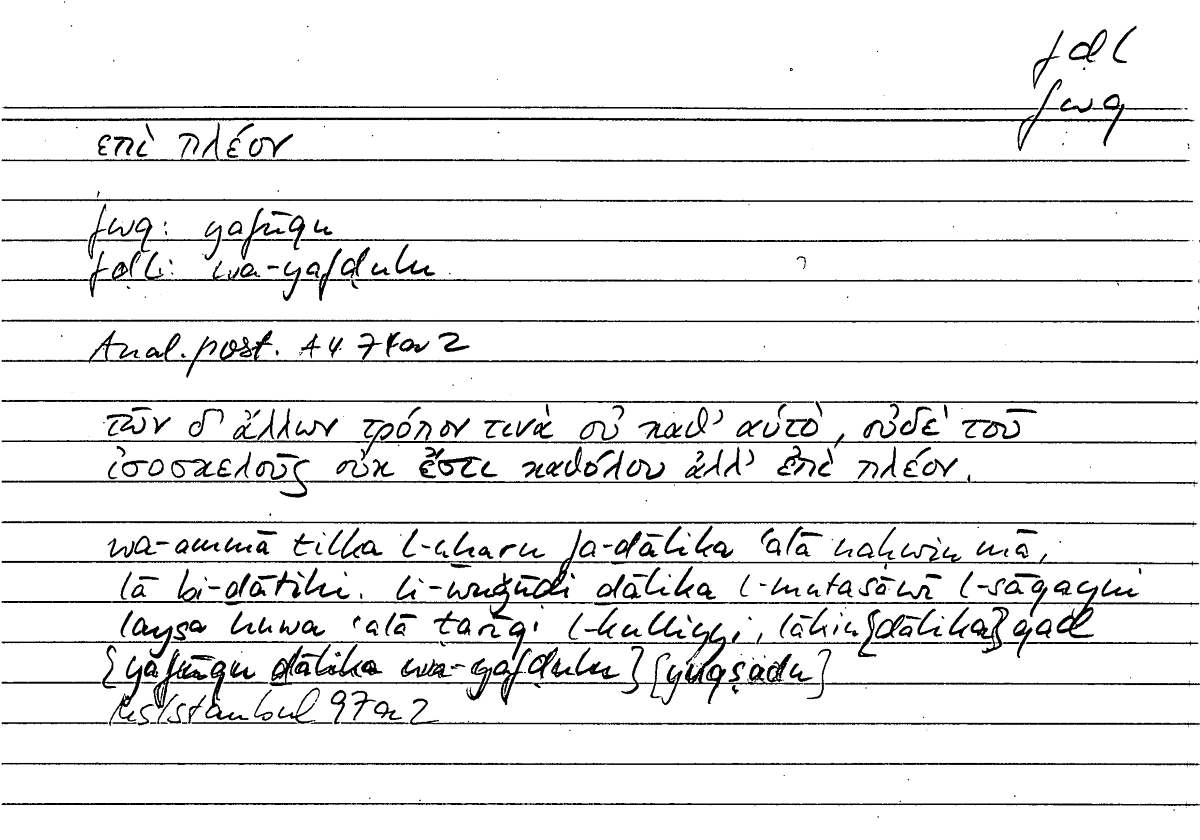 fḍl
fwq
ἐπὶ πλέον
fwq: yafūqu
fḍl: wa-yafḍulu
Anal. post. A4 74a2
τῶν δ' ἄλλων τρόπον τινὰ οὐ καθ' αὑτό, οὐδὲ τοῦ
ἰσοσκελοῦς οὐκ ἔστι καθόλου ἀλλ' ἐπὶ πλέον.
wa-ammā tilka l-uḫaru fa-ḏālika ʿalā naḥwin mā,
lā bi-ḏātihi. li-wuǧūdi ḏālika l-mutasāwī l-sāqayni
laysa huwa ʿalā ṭarīqi l-kulliyyi, lākin {ḏālika} qad
{yafūqu ḏālika wa-yafḍulu} [yuqṣadu]
Ms Istanbul 97a2